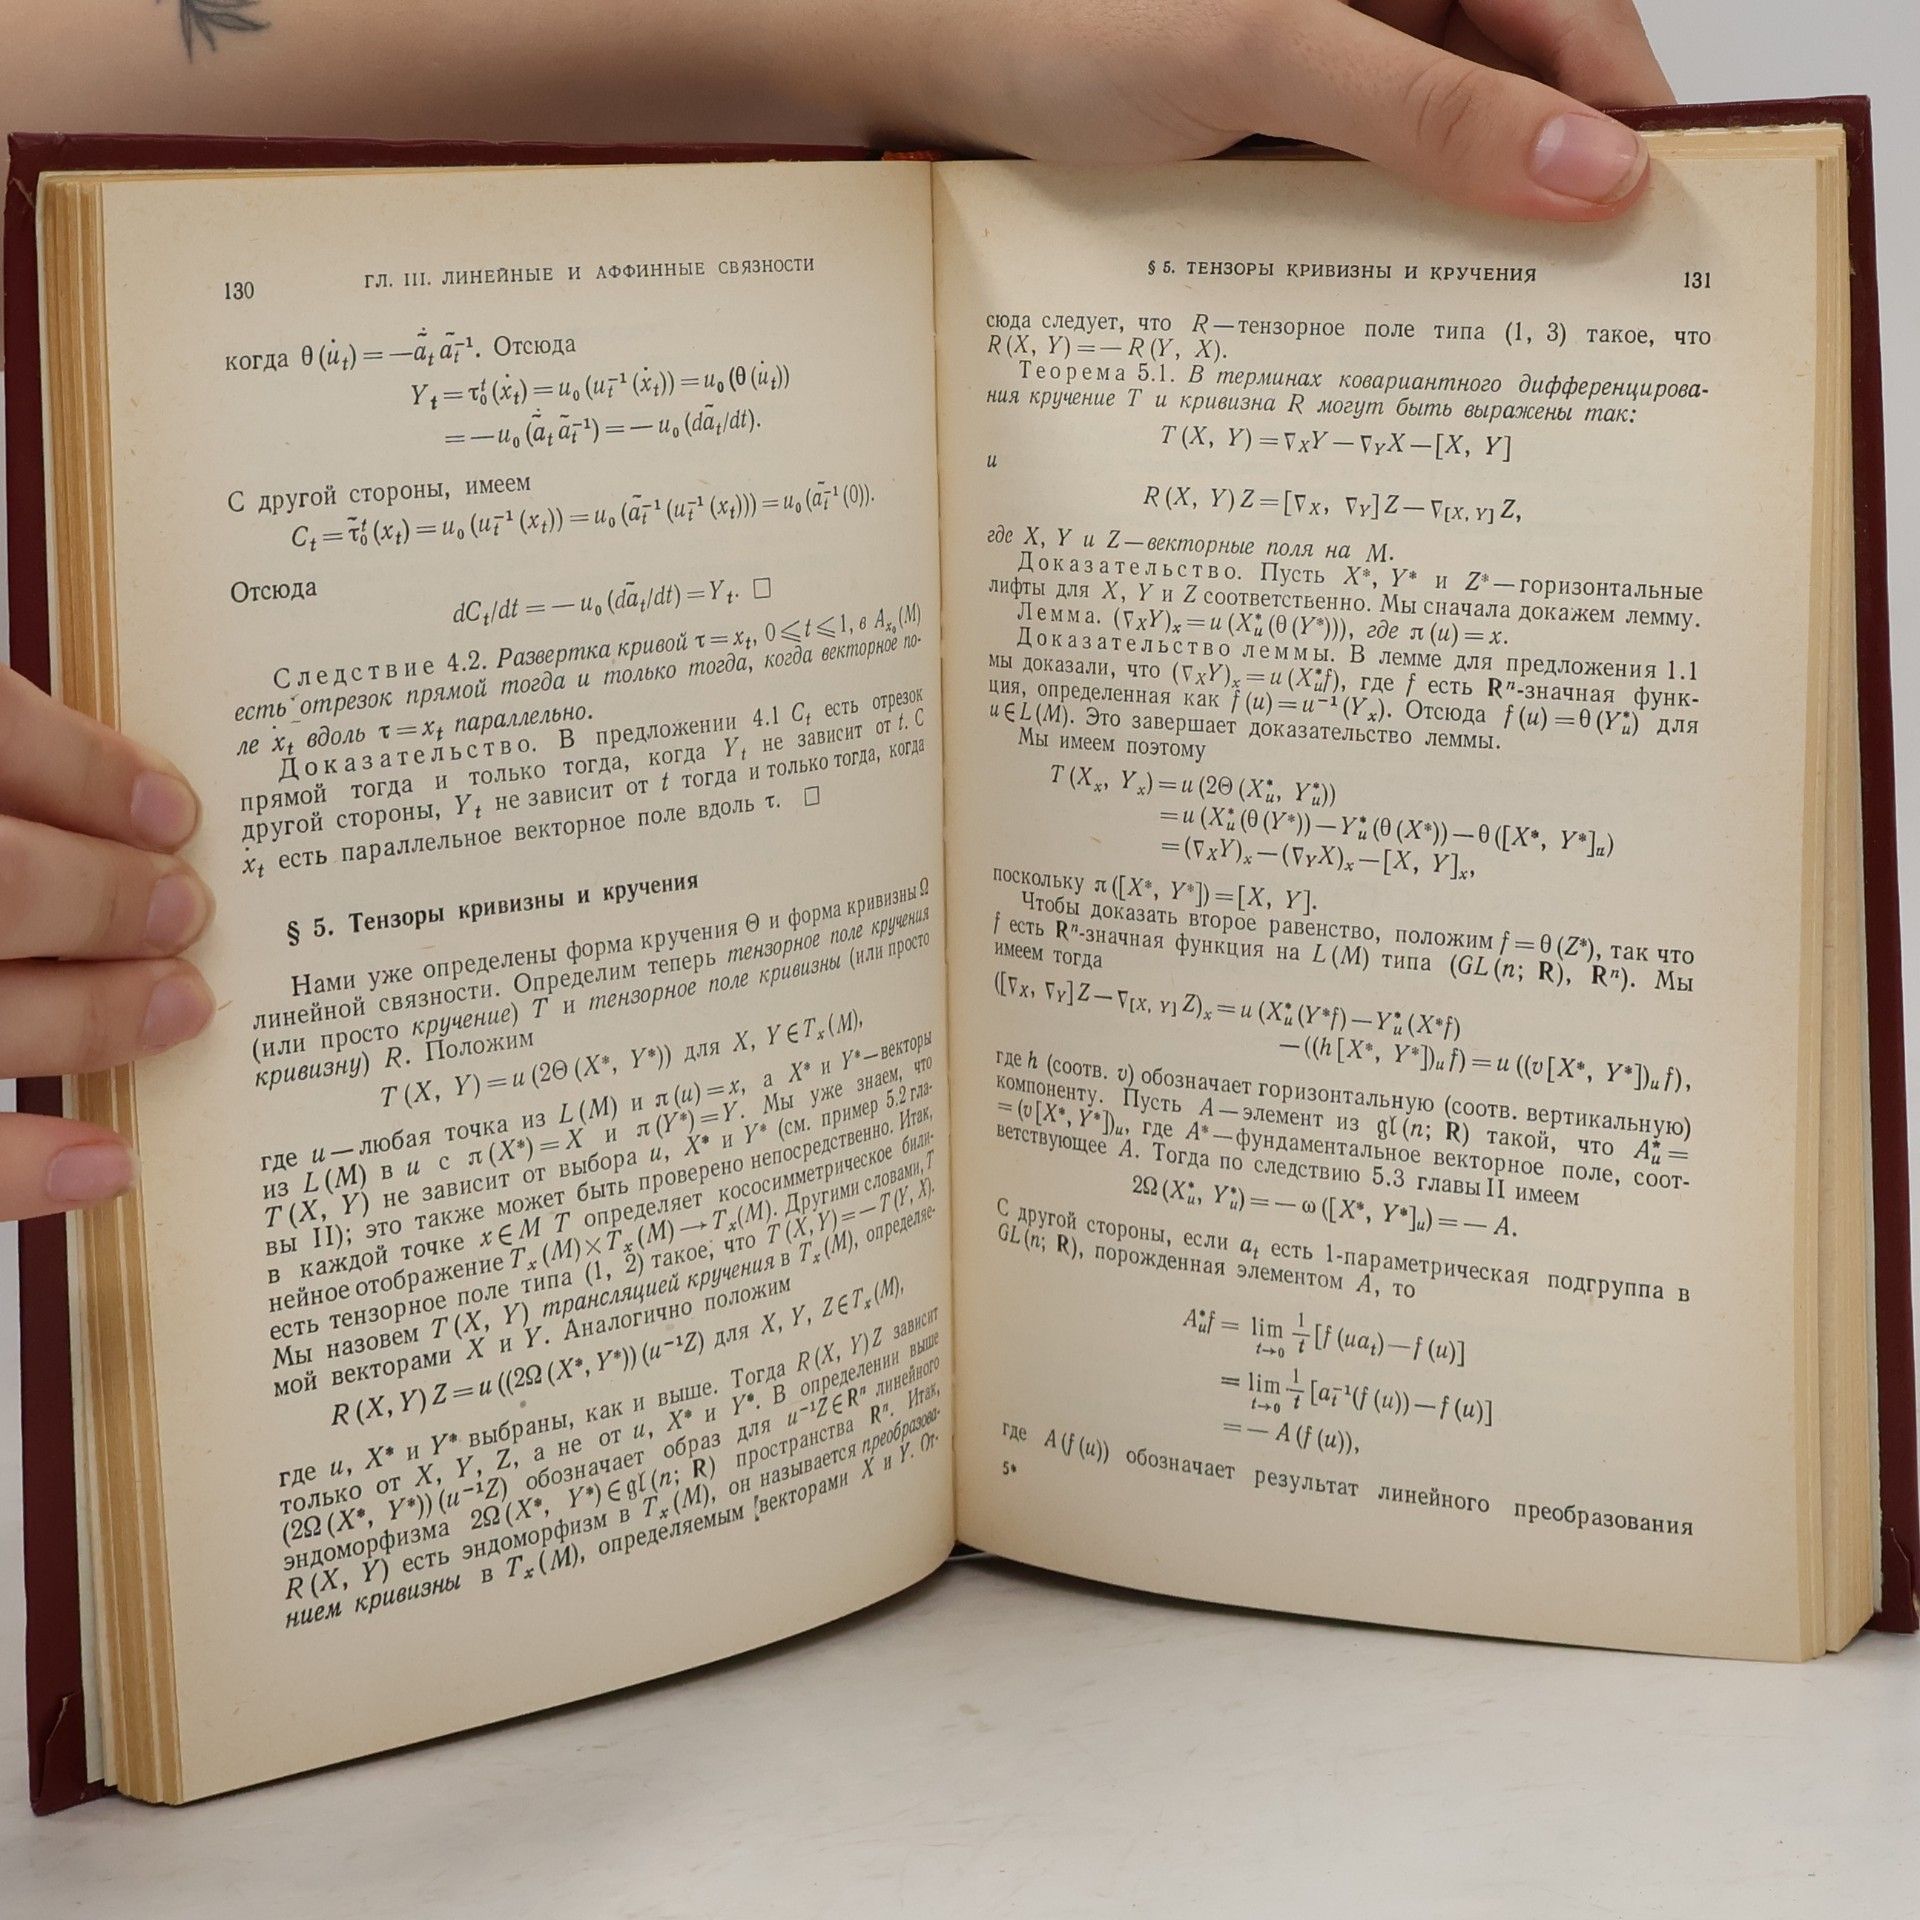 130 ГЛ. III. ЛИНЕЙНЫЕ И АФФИННЫЕ СВЯЗНОСТИ
когда θ(u̇ₜ) = —ã̇ₜ ãₜ⁻¹. Отсюда
Yₜ = τ₀ᵗ(ẋₜ) = u₀(uₜ⁻¹(ẋₜ)) = u₀(θ(u̇ₜ))
= — u₀(ã̇ₜ ãₜ⁻¹) = — u₀(dãₜ/dt).
С другой стороны, имеем
Cₜ = τ̃₀ᵗ(xₜ) = u₀(uₜ⁻¹(xₜ)) = u₀(ãₜ⁻¹(uₜ⁻¹(xₜ))) = u₀(ãₜ⁻¹(0)).
Отсюда
dCₜ/dt = — u₀(dãₜ/dt) = Yₜ. □
Следствие 4.2. Развертка кривой τ = xₜ, 0 ⩽ t ⩽ 1, в Aₓ₀(M)
есть отрезок прямой тогда и только тогда, когда векторное по-
ле ẋₜ вдоль τ = xₜ параллельно.
Доказательство. В предложении 4.1 Cₜ есть отрезок
прямой тогда и только тогда, когда Yₜ не зависит от t. С
другой стороны, Yₜ не зависит от t тогда и только тогда, когда
ẋₜ есть параллельное векторное поле вдоль τ. □
§ 5. Тензоры кривизны и кручения
Нами уже определены форма кручения Θ и форма кривизны Ω
линейной связности. Определим теперь тензорное поле кручения
(или просто кручение) T и тензорное поле кривизны (или просто
кривизну) R. Положим
T(X, Y) = u(2Θ(X*, Y*)) для X, Y ∈ Tₓ(M),
где u — любая точка из L(M) и π(u) = x, а X* и Y* — векторы
из L(M) в u с π(X*) = X и π(Y*) = Y. Мы уже знаем, что
T(X, Y) не зависит от выбора u, X* и Y* (см. пример 5.2 гла-
вы II); это также может быть проверено непосредственно. Итак,
в каждой точке x ∈ M T определяет кососимметрическое били-
нейное отображение Tₓ(M) × Tₓ(M) → Tₓ(M). Другими словами, T
есть тензорное поле типа (1, 2) такое, что T(X, Y) = — T(Y, X).
Мы назовем T(X, Y) трансляцией кручения в Tₓ(M), определяе-
мой векторами X и Y. Аналогично положим
R(X, Y) Z = u((2Ω(X*, Y*))(u⁻¹Z) для X, Y, Z ∈ Tₓ(M),
где u, X* и Y* выбраны, как и выше. Тогда R(X, Y) Z зависит
только от X, Y, Z, а не от u, X* и Y*. В определении выше
(2Ω(X*, Y*))(u⁻¹Z) обозначает образ для u⁻¹Z ∈ Rⁿ линейного
эндоморфизма 2Ω(X*, Y*) ∈ gl(n; R) пространства Rⁿ. Итак,
R(X, Y) есть эндоморфизм в Tₓ(M), он называется преобразова-
нием кривизны в Tₓ(M), определяемым векторами X и Y. От-
§ 5. ТЕНЗОРЫ КРИВИЗНЫ И КРУЧЕНИЯ 131
сюда следует, что R — тензорное поле типа (1, 3) такое, что
R(X, Y) = — R(Y, X).
Теорема 5.1. В терминах ковариантного дифференцирова-
ния кручение T и кривизна R могут быть выражены так:
T(X, Y) = ∇_X Y — ∇_Y X — [X, Y]
и
R(X, Y) Z = [∇_X, ∇_Y] Z — ∇_[X, Y] Z,
где X, Y и Z — векторные поля на M.
Доказательство. Пусть X*, Y* и Z* — горизонтальные
лифты для X, Y и Z соответственно. Мы сначала докажем лемму.
Лемма. (∇_X Y)ₓ = u(X*ᵤ(θ(Y*))), где π(u) = x.
Доказательство леммы. В лемме для предложения 1.1
мы доказали, что (∇_X Y)ₓ = u(X*ᵤf), где f есть Rⁿ-значная функ-
ция, определенная как f(u) = u⁻¹(Yₓ). Отсюда f(u) = θ(Y*ᵤ) для
u ∈ L(M). Это завершает доказательство леммы.
Мы имеем поэтому
T(Xₓ, Yₓ) = u(2Θ(X*ᵤ, Y*ᵤ))
= u(X*ᵤ(θ(Y*)) — Y*ᵤ(θ(X*)) — θ([X*, Y*]ᵤ)
= (∇_X Y)ₓ — (∇_Y X)ₓ — [X, Y]ₓ,
поскольку π([X*, Y*]) = [X, Y].
Чтобы доказать второе равенство, положим f = θ(Z*), так что
f есть Rⁿ-значная функция на L(M) типа (GL(n; R), Rⁿ). Мы
имеем тогда
([∇_X, ∇_Y] Z — ∇_[X, Y] Z)ₓ = u(X*ᵤ(Y*f) — Y*ᵤ(X*f)
— ((h[X*, Y*])ᵤ f) = u((v[X*, Y*])ᵤ f),
где h (соотв. v) обозначает горизонтальную (соотв. вертикальную)
компоненту. Пусть A — элемент из gl(n; R) такой, что A*ᵤ =
= (v[X*, Y*])ᵤ, где A* — фундаментальное векторное поле, соот-
ветствующее A. Тогда по следствию 5.3 главы II имеем
2Ω(X*ᵤ, Y*ᵤ) = — ω([X*, Y*]ᵤ) = — A.
С другой стороны, если aₜ есть 1-параметрическая подгруппа в
GL(n; R), порожденная элементом A, то
A*ᵤf = lim_{t→0} 1/t [f(uaₜ) — f(u)]
= lim_{t→0} 1/t [aₜ⁻¹(f(u)) — f(u)]
= — A(f(u)),
где A(f(u)) обозначает результат линейного преобразования
5*